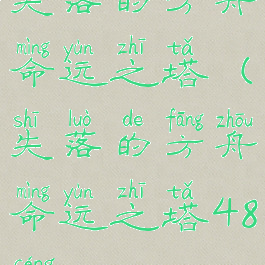 失落的方舟
mìng yùn zhī tǎ
命运之塔(
shī luò de fāng zhōu
失落的方舟
mìng yùn zhī tǎ
命运之塔48
céng